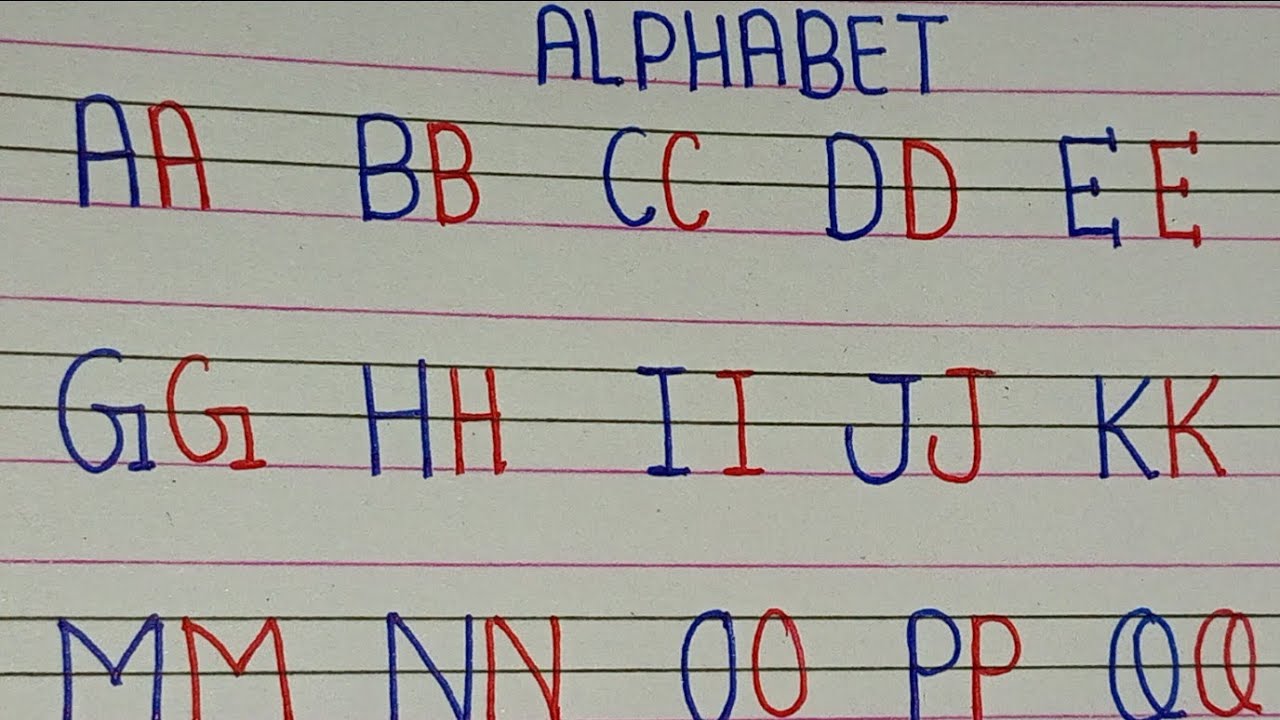 ALPHABET
AA BB CC DD EE
GG HH II JJ KK
MM NN OO PP QQ